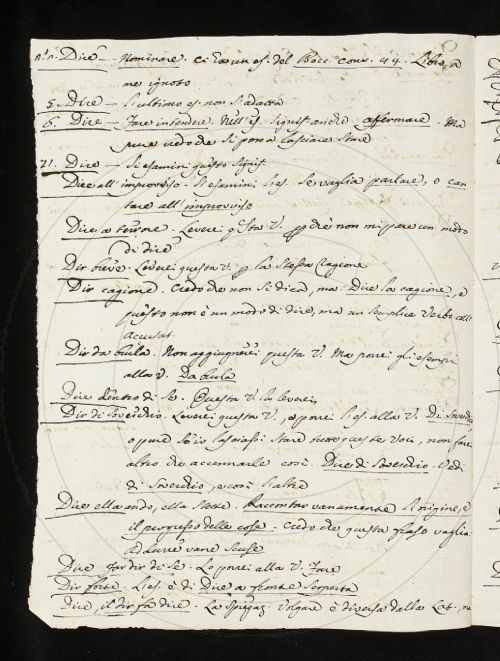 Dire — Nominare. Ci è un es. del Bocc. conv. 44. Libro a
me ignoto
5. Dire — L'ultimo es. non s'adatta
6. Dire — Fare intendere. Nell'es. signif. anche affermare. Ma
pure vedo che si possa lasciare stare
71. Dire — Si esamini questo signif.
Dire all'improvviso. Si esamini l'es. se vaglia parlare, o can
tare all'improvviso
Dire a tenore. Leverei questa V. perchè non mi pare un modo
di dire
Dir bene. Leverei questa V. per la stessa cagione
Dir cagione. Credo che non si dica, ma: Dire la cagione, e
questo non è un modo di dire, ma un semplice Verbo coll'
accusat.
Dir da burla. Non aggiugnerei questa V. Ma porrei gli esempi
alla V. Da burla
Dire dentro di se. Questa V. la leverei
Dir di . Leverei questa V., e porrei l'es. alla V. Di
oppure se io lasciassi stare queste voci, non farei
altro che accennarle così. Dire di . Vedi
di , e così l'altre
Dire ella ando, ella stette. Raccontar vanamente l'origine, e
il progresso delle cose. Credo che questa frase vaglia
Addurre vane scuse
Dire far dir di se. Lo porrei alla V. Fare
Dir forte. L'es. è di Dire a fronte scoperta
Dire, il dir fa dire. La spiegaz. Volgare è diversa dalla Lat.